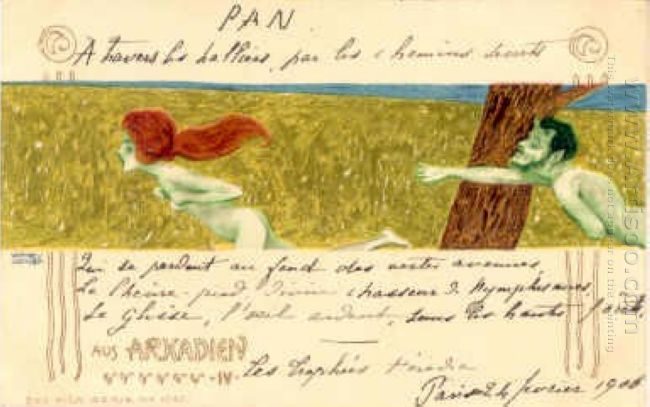 PAN
A travers les halliers, par les chemins secrets
Qui se perdent au fond des vertes avenues,
Le Chèvre-pied divin chasseur de Nymphes nues,
Se glisse, l'oeil ardent, sous les hautes forêts,
AUS ARKADIEN
IV
Les Trophées Hérédia
Paris 24 février 1906